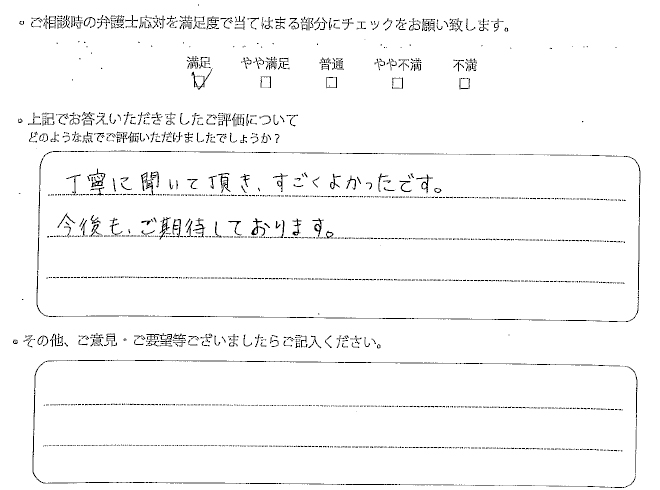 。ご相談時の弁護士応対を満足度で当てはまる部分にチェックをお願い致します。
満足 やや満足 普通 やや不満 不満
。上記でお答えいただきましたご評価について
どのような点でご評価いただけましたでしょうか？
丁寧に聞いて頂き、すごくよかったです。
今後も、ご期待しております。
。その他、ご意見・ご要望等ございましたらご記入ください。